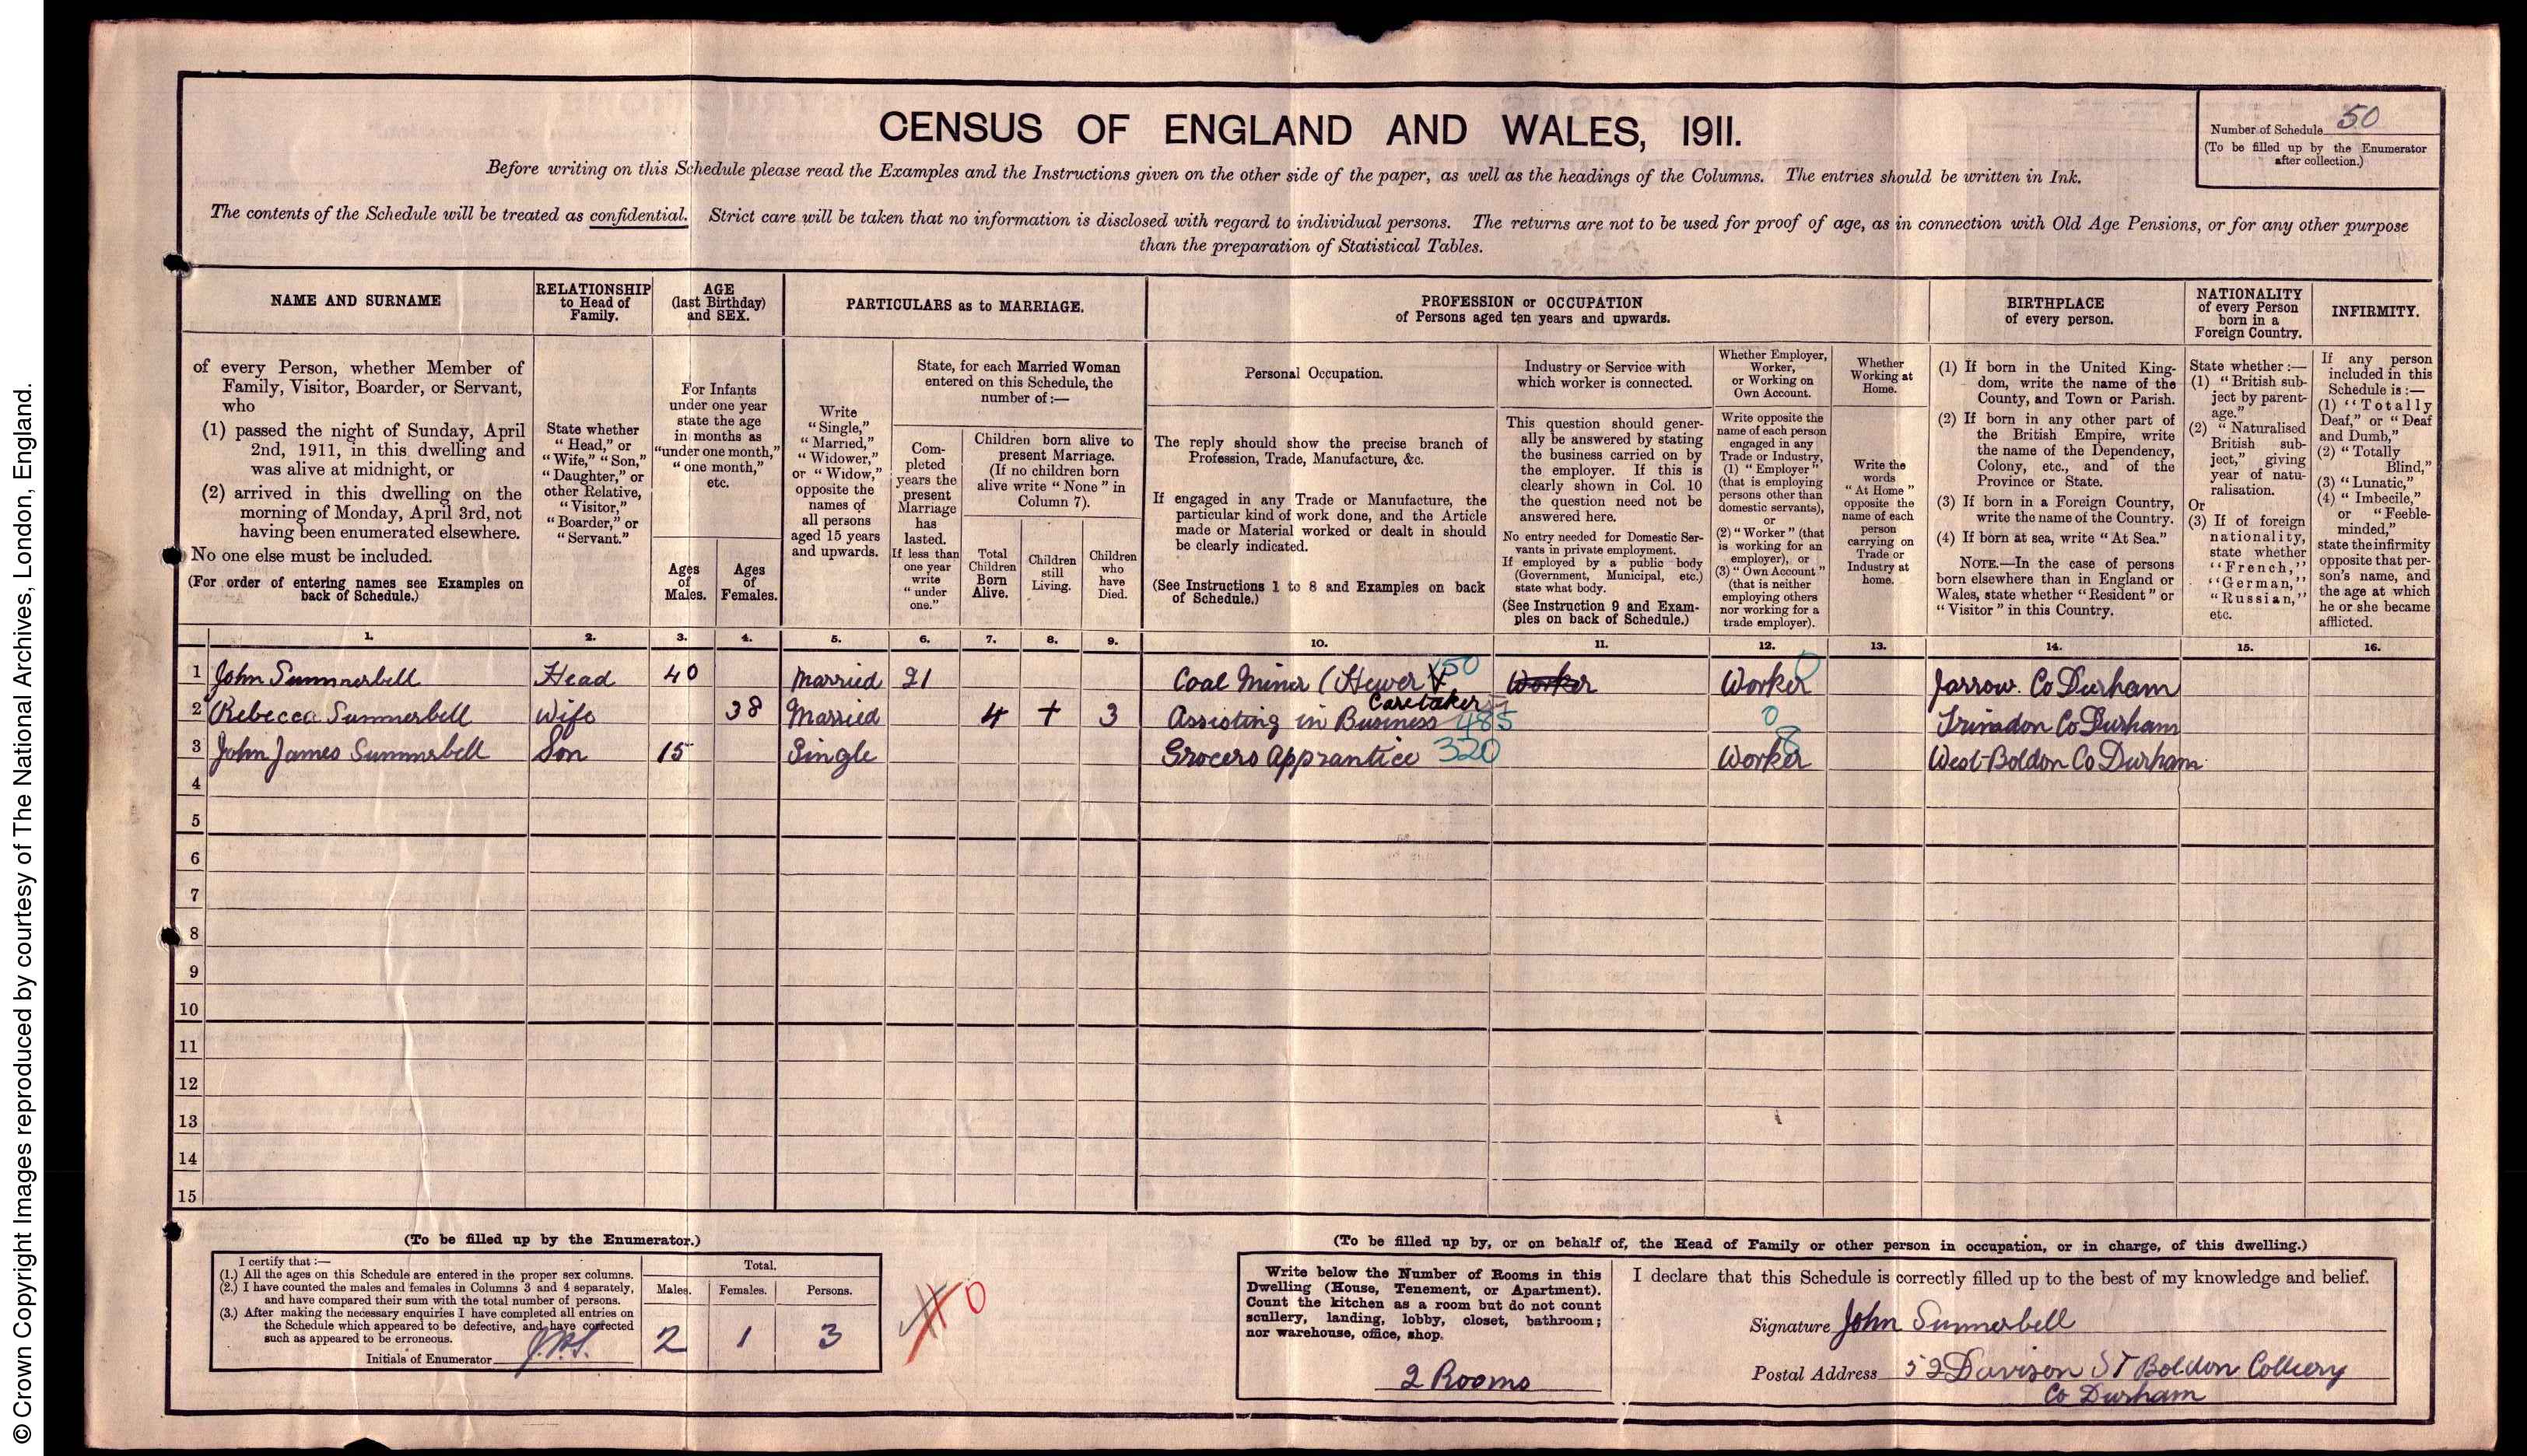 CENSUS OF ENGLAND AND WALES, 1911.
Number of Schedule 50
(To be filled up by the Enumerator
after collection.)
Before writing on this Schedule please read the Examples and the Instructions given on the other side of the paper, as well as the headings of the Columns. The entries should be written in Ink.
The contents of the Schedule will be treated as confidential. Strict care will be taken that no information is disclosed with regard to individual persons. The returns are not to be used for proof of age, as in connection with Old Age Pensions, or for any other purpose
than the preparation of Statistical Tables.
NAME AND SURNAME
of every Person, whether Member of
Family, Visitor, Boarder, or Servant,
who
(1) passed the night of Sunday, April
2nd, 1911, in this dwelling and
was alive at midnight, or
(2) arrived in this dwelling on the
morning of Monday, April 3rd, not
having been enumerated elsewhere.
No one else must be included.
(For order of entering names see Examples on
back of Schedule.)
RELATIONSHIP
to Head of
Family.
State whether
"Head," or
"Wife," "Son,"
"Daughter," or
other Relative,
"Visitor,"
"Boarder," or
"Servant."
AGE
(last Birthday)
and SEX.
For Infants
under one year
state the age
in months as
"under one month,"
"one month,"
etc.
Ages
of
Males.
Ages
of
Females.
PARTICULARS as to MARRIAGE.
Write
"Single,"
"Married,"
"Widower,"
or "Widow,"
opposite the
names of
all persons
aged 15 years
and upwards.
State, for each Married Woman
entered on this Schedule, the
number of :—
Com-
pleted
years the
present
Marriage
has
lasted.
If less than
one year
write
"under
one."
Children born alive to
present Marriage.
(If no children born
alive write "None" in
Column 7).
Total
Children
Born
Alive.
Children
still
Living.
Children
who
have
Died.
PROFESSION or OCCUPATION
of Persons aged ten years and upwards.
Personal Occupation.
The reply should show the precise branch of
Profession, Trade, Manufacture, &c.
If engaged in any Trade or Manufacture, the
particular kind of work done, and the Article
made or Material worked or dealt in should
be clearly indicated.
(See Instructions 1 to 8 and Examples on back
of Schedule.)
Industry or Service with
which worker is connected.
This question should gener-
ally be answered by stating
the business carried on by
the employer. If this is
clearly shown in Col. 10
the question need not be
answered here.
No entry needed for Domestic Ser-
vants in private employment.
If employed by a public body
(Government, Municipal, etc.)
state what body.
(See Instruction 9 and Exam-
ples on back of Schedule.)
Whether Employer,
Worker,
or Working on
Own Account.
Write opposite the
name of each person
engaged in any
Trade or Industry,
(1) "Employer"
(that is employing
persons other than
domestic servants),
or
(2) "Worker" (that
is working for an
employer), or
(3) "Own Account"
(that is neither
employing others
nor working for a
trade employer).
Whether
Working at
Home.
Write the
words
"At Home"
opposite the
name of each
person
carrying on
Trade or
Industry at
home.
BIRTHPLACE
of every person.
(1) If born in the United King-
dom, write the name of the
County, and Town or Parish.
(2) If born in any other part of
the British Empire, write
the name of the Dependency,
Colony, etc., and of the
Province or State.
(3) If born in a Foreign Country,
write the name of the Country.
(4) If born at sea, write "At Sea."
NOTE.—In the case of persons
born elsewhere than in England or
Wales, state whether "Resident" or
"Visitor" in this Country.
NATIONALITY
of every Person
born in a
Foreign Country.
State whether :—
(1) "British sub-
ject by parent-
age."
(2) "Naturalised
British sub-
ject," giving
year of natu-
ralisation.
Or
(3) If of foreign
nationality,
state whether
"French,"
"German,"
"Russian,"
etc.
INFIRMITY.
If any person
included in this
Schedule is :—
(1) "Totally
Deaf," or "Deaf
and Dumb,"
(2) "Totally
Blind,"
(3) "Lunatic,"
(4) "Imbecile,"
or "Feeble-
minded,"
state the infirmity
opposite that per-
son's name, and
the age at which
he or she became
afflicted.
1. 2. 3. 4. 5. 6. 7. 8. 9. 10. 11. 12. 13. 14. 15. 16.
1 John Summerbell Head 40 Married 21 Coal Miner (Hewer 50 Worker Worker 0 Jarrow. Co Durham
Caretaker
2 Rebecca Summerbell Wife 38 Married 4 + 3 Assisting in Business 485 0 Trimdon Co Durham
3 John James Summerbell Son 15 Single Grocers Apprantice 320 Worker West-Boldon Co Durham
4
5
6
7
8
9
10
11
12
13
14
15
(To be filled up by the Enumerator.)
I certify that :—
(1.) All the ages on this Schedule are entered in the proper sex columns.
(2.) I have counted the males and females in Columns 3 and 4 separately,
and have compared their sum with the total number of persons.
(3.) After making the necessary enquiries I have completed all entries on
the Schedule which appeared to be defective, and have corrected
such as appeared to be erroneous.
Initials of Enumerator
Total.
Males. Females. Persons.
2 1 3
0
(To be filled up by, or on behalf of, the Head of Family or other person in occupation, or in charge, of this dwelling.)
Write below the Number of Rooms in this
Dwelling (House, Tenement, or Apartment).
Count the kitchen as a room but do not count
scullery, landing, lobby, closet, bathroom;
nor warehouse, office, shop.
2 Rooms
I declare that this Schedule is correctly filled up to the best of my knowledge and belief.
Signature John Summerbell
Postal Address 52 Davison ST Boldon Colliery
Co Durham
© Crown Copyright Images reproduced by courtesy of The National Archives, London, England.